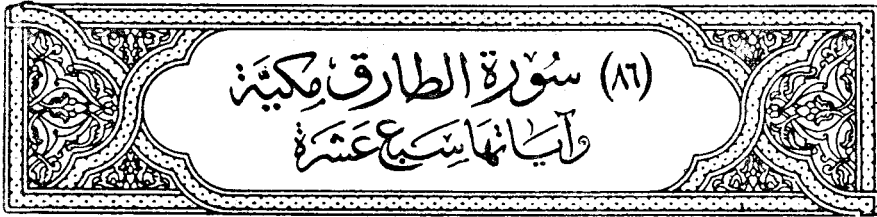 (٨٦) سُورَة الطارق مكيَّة
وآياتها سَبع عَشَرَة